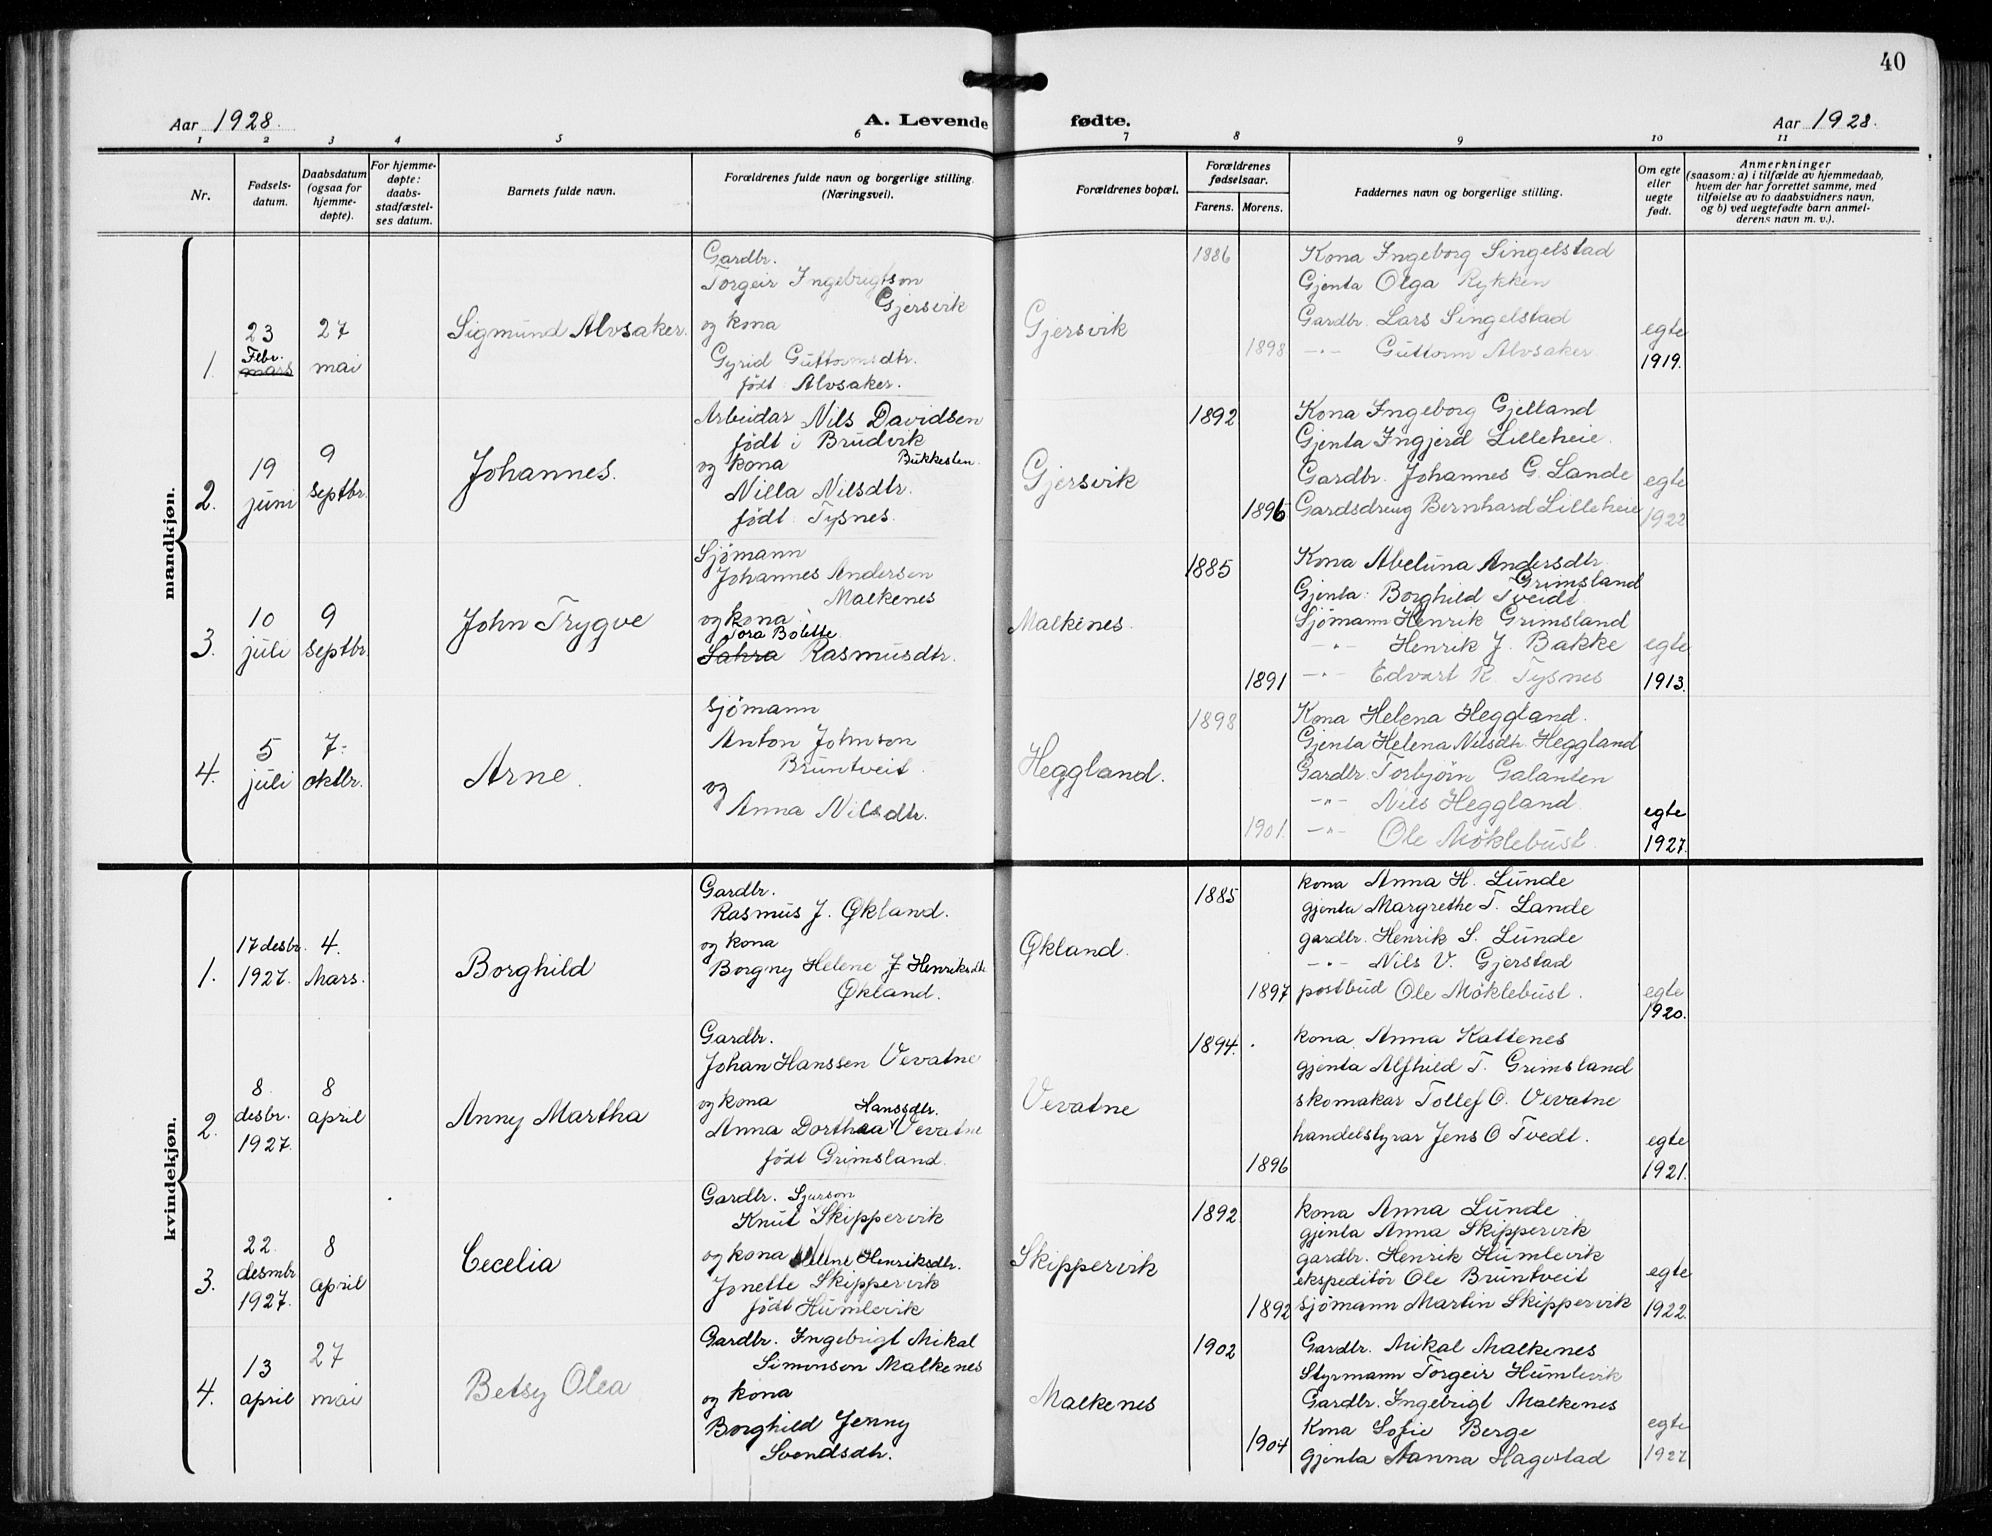 40
Aar 1928.
A. Levende
fødte.
Aar 1928.
1 2 3 4 5 6 7 8 9 10 11
Nr.
Fødsels-
datum.
Daabsdatum
(ogsaa for
hjemme-
døpte).
For hjemme-
døpte:
daabs-
stadfæstel-
ses datum.
Barnets fulde navn.
Forældrenes fulde navn og borgerlige stilling.
(Næringsvei).
Forældrenes bopæl.
Forældrenes
fødselsaar.
Farens. Morens.
Faddernes navn og borgerlige stilling.
Om egte
eller
uegte
født.
Anmerkninger
(saasom: a) i tilfælde av hjemmedaab,
hvem der har forrettet samme, med
tilføielse av to daabsvidners navn,
og b) ved uegtefødte barn anmel-
derens navn m. v.).
mandkjøn.
1.
23
Febr.
mars
27
mai
Sigmund Alvsaker.
Gardbr.
Torgeir Ingebrigtson
Gjersvik
og kona
Gyrid Guttormsdtr.
födt Alvsaker.
Gjersvik
1886
1898
Kona Ingeborg Singelstad
Gjenta Olga Rykken
Gardbr. Lars Singelstad
-"- Guttorm Alvsaker
egte
1919.
2.
19
juni
9
septbr.
Johannes.
Arbeidar Nils Davidsen
födt i Brudvik
og kona Bukkesten.
Nilla Nilsdtr.
födt: Tysnes.
Gjersvik
1892
1896
Kona Ingeborg Gjelland
Gjenta Ingjerd Lilleheie.
Gardbr. Johannes G. Lande
Gardsdreng Bernhard Lilleheie
egte
1922
3.
10
juli
9
septbr.
John Trygve
Sjömann
Johannes Andersen
Malkenes
og kona.
Tora Bolette
Sahra Rasmusdtr.
Malkenes.
1885
1891
Kona Abeluna Andersdtr
Grimsland
Gjenta: Borghild Tveidt.
Sjömann Henrik Grimsland
-"- Henrik J. Bakke
-"- Edvart R. Tysnes
egte
1913.
4.
5
juli
7.
oktbr.
Arne.
Sjömann
Anton Johnson
Bruntveit.
og
Anna Nilsdtr.
Heggland.
1898
1901.
Kona Helena Heggland.
Gjenta Helena Nilsdtr. Heggland
Gardbr. Torbjörn Galanten
-"- Nils Heggland
-"- Ole Möklebust.
egte
1927.
kvindekjøn.
1.
17 desbr.
1927.
4.
Mars.
Borghild
Gardbr.
Rasmus J. Økland.
og kona
Borgny Helene J Henriksdtr.
Økland.
Økland.
1885
1897
kona Anna H. Lunde
gjenta Margrethe T. Lande
gardbr. Henrik S. Lunde
-"- Nils V. Gjerstad
postbud Ole Möklebust.
egte
1920.
2.
8.
desbr.
1927.
8
april
Anny Martha
Gardbr.
Johan Hanssen Vevatne
og kona Hanssdtr.
Anna Dorthea Vevatne
födt Grimsland.
Vevatne
1894.
1896
kona. Anna Kattenes
gjenta Alfhild T. Grimsland
skomakar Tollef O. Vevatne
handelstyrar Jens O Tvedt.
egte
1921.
3.
22.
desmbr
1927.
8
april
Cecelia
Gardbr. Sjurson
Knut Skippervik
og kona Helene Henriksdtr.
Jonette Skippervik
födt Humlevik
Skippervik
1892
1892
kona Anna Lunde
gjenta Anna Skippervik
gardbr. Henrik Humlevik
ekspeditör Ole Bruntveit
sjömann Martin Skippervik
egte
1922.
4.
13
april
27
mai
Betsy Olea
Gardbr. Ingebrigt Mikal
Simonson Malkenes
og kona
Borghild Jenny
Svendsdtr.
Malkenes
1902
1904
Gardbr. Mikal Malkenes
Styrmann Torgeir Humlevik
Gardbr. Ingebrigt Malkenes
Kona Sofie Berge
Gjenta Nanna Hagestad
egte
1927